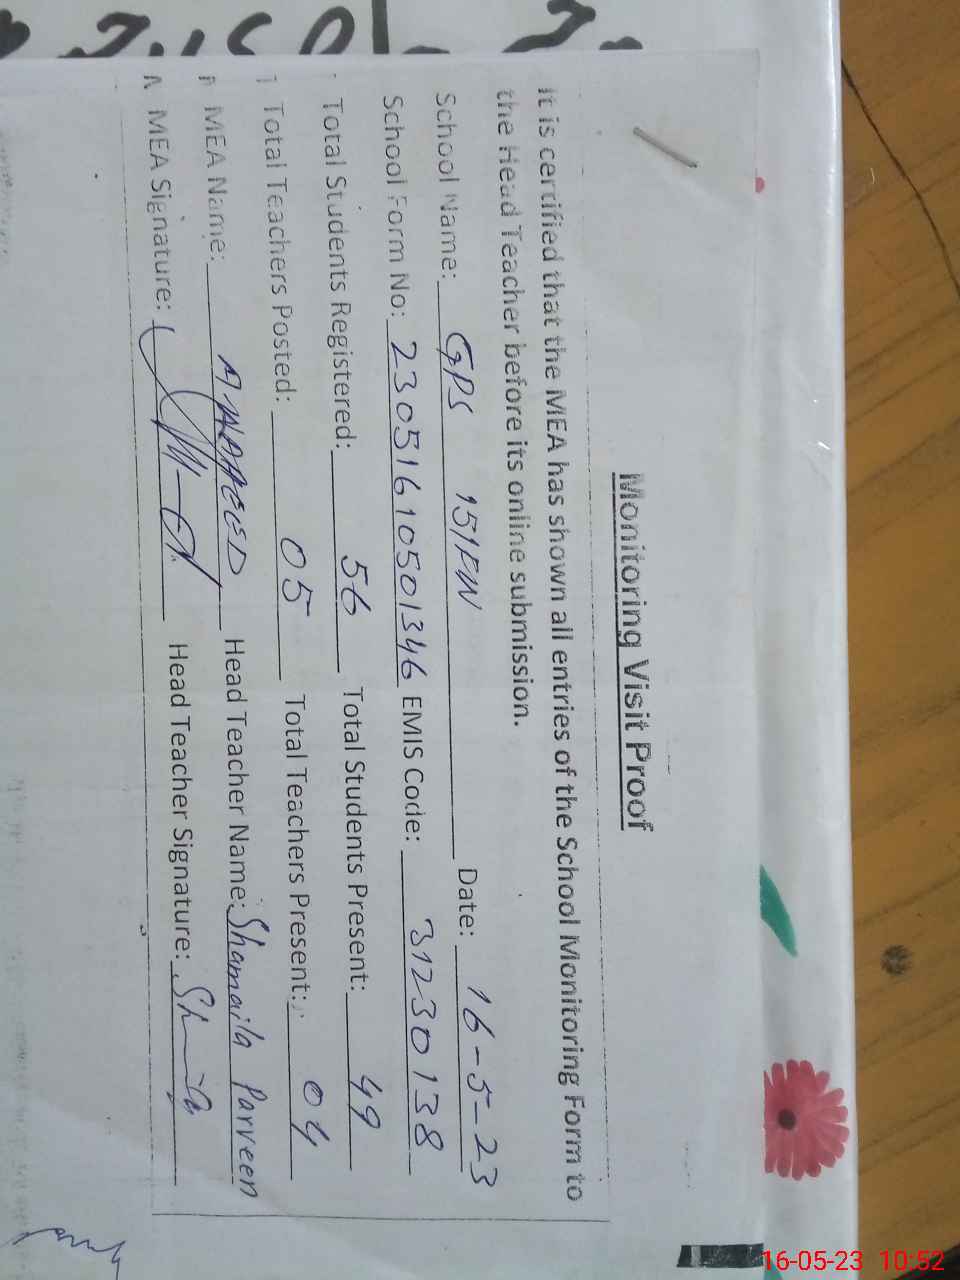 Monitoring Visit Proof
It is certified that the MEA has shown all entries of the School Monitoring Form to
the Head Teacher before its online submission.
School Name: GPS 151EW Date: 16-5-23
School Form No: 23051610501346 EMIS Code: 31230138
Total Students Registered: 56 Total Students Present: 49
Total Teachers Posted: 05 Total Teachers Present: 04
MEA Name: Head Teacher Name: Shamaila Parveen
MEA Signature: Head Teacher Signature:
16-05-23 10:52